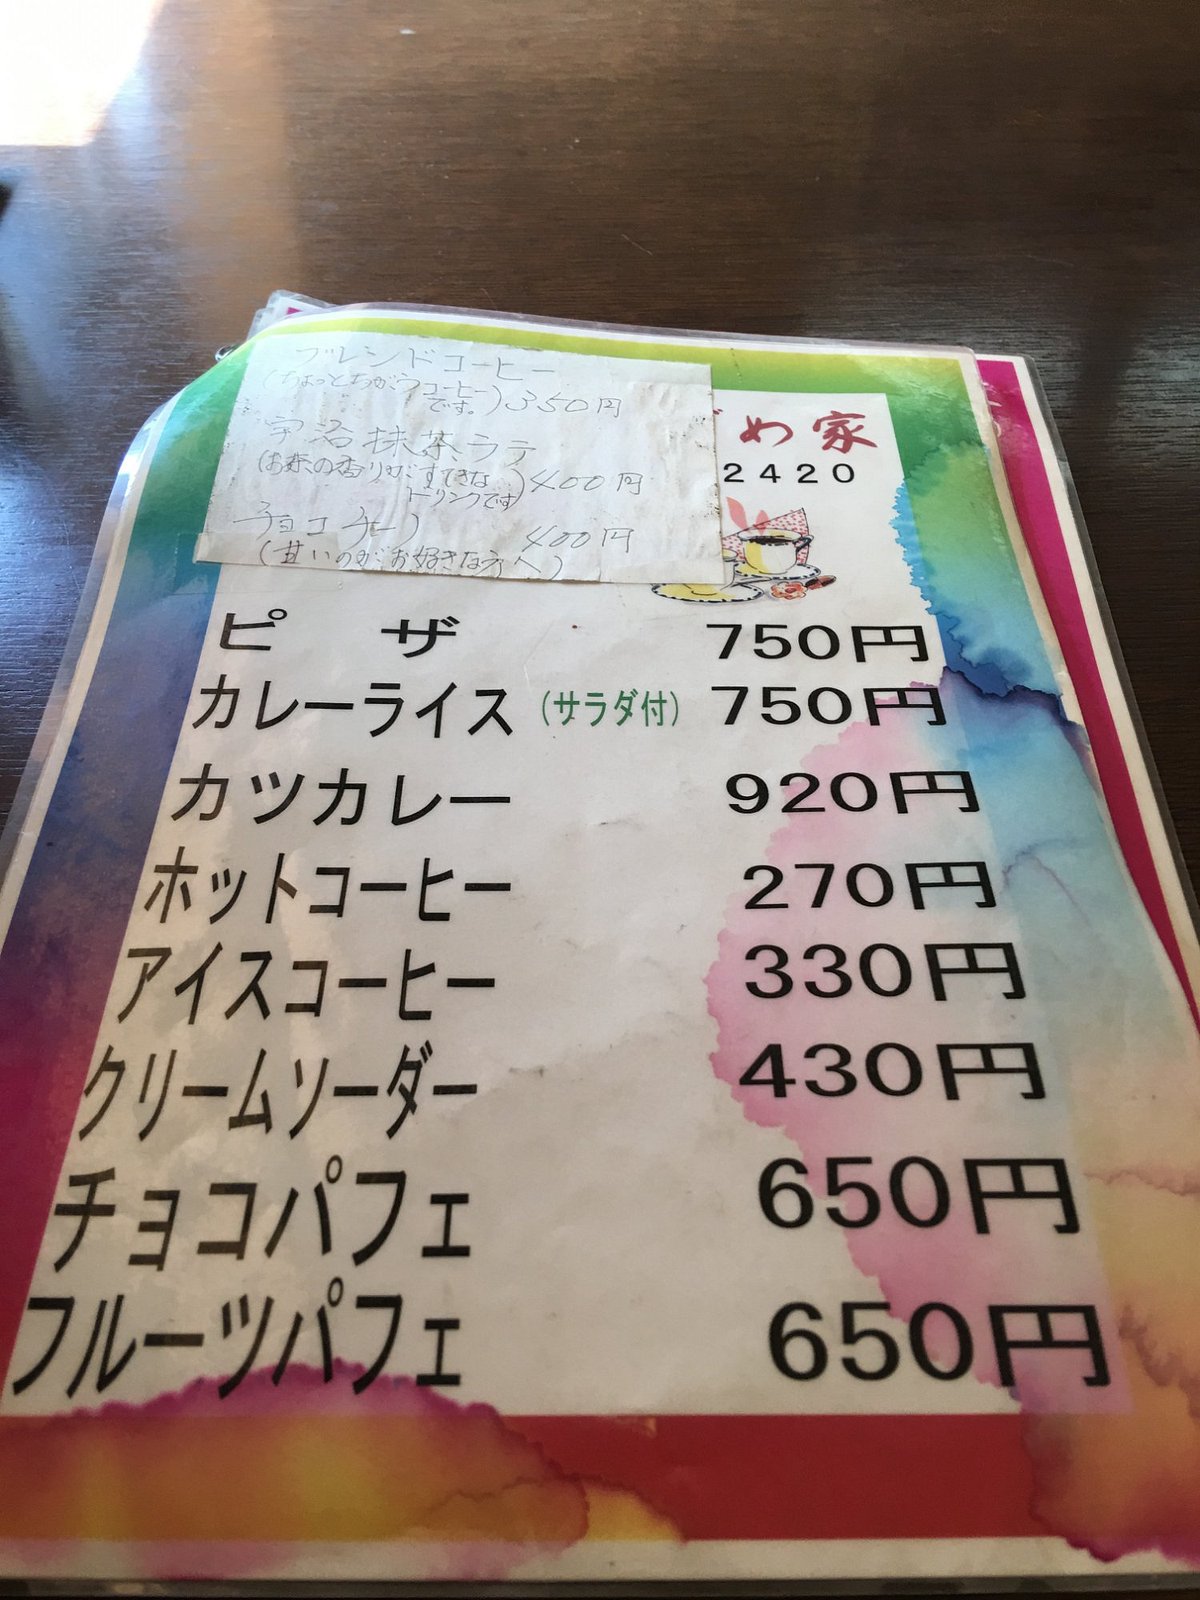 ブレンドコーヒー
(ちょっとちがうコーヒー
です。)350円
宇治抹茶ラテ
(お茶の香りがすてきな
ドリンクです)400円
チョコチー
400円
(甘いのがお好きな方へ)
め家
2420
ピザ 750円
カレーライス (サラダ付) 750円
カツカレー 920円
ホットコーヒー 270円
アイスコーヒー 330円
クリームソーダー 430円
チョコパフェ 650円
フルーツパフェ 650円